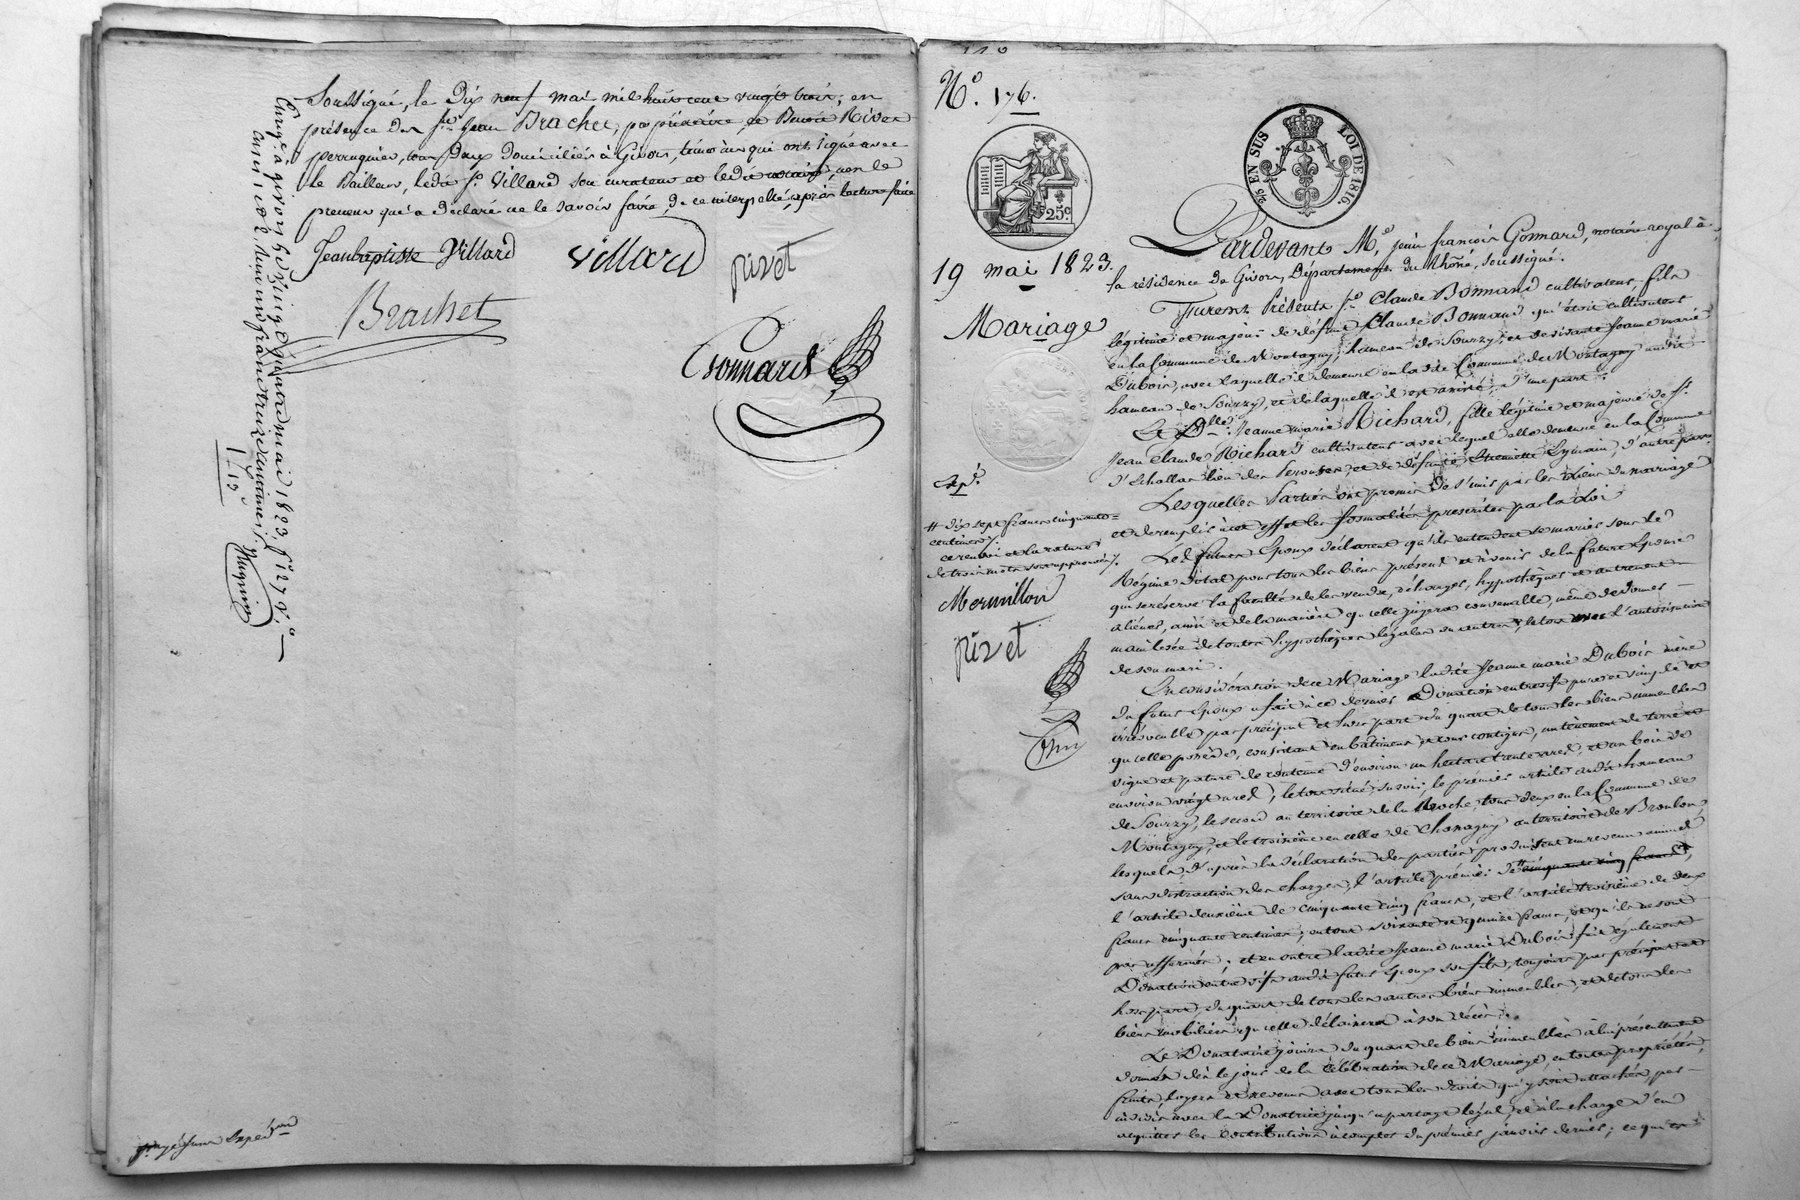 Soussigné, le Dix neuf mai mil huit cent vingt trois; en
présence des Srs Jean Brachet, propriétaire, et Benoit River
perruquier, tous Deux domiciliés à Givors, témoins qui ont signé avec
le Bailleur, ledit Sr Villard son curateur et ledit notaire, non le
preneur qui a déclaré ne le savoir faire, de ce interpellé, après lecture faite
Jean baptiste Villard
Villard
pivet
Brachet
Gonnard
Enregé à givors le vingt quatre mai 1823, fo 127 Vo
1823, fo 127
un franc treize centimes
No. 176.
25 EN SUS LOI DE 1816.
25c.
19 mai 1823.
Mariage
Expé.
# dix sept francs cinquante
centimes
ce renvoi et la rature
de trois mots sont approuvés
Mermillon
pivet
Pardevant Me. jean françois Gonnard, notaire royal à
la résidence de Givors, Département du Rhône, soussigné.
Furent Présents Sr Claude Bonnand cultivateur, fils
légitime et majeur de défunt Claude Bonnand qui était cultivateur
en la Commune de Montagny, hameau de Sourzy, et de vivante Jeanne marie
Dubois, avec laquelle il demeure en la dite Commune de Montagny audit
hameau de Sourzy, et de laquelle il est assisté, D'une part.
Et Dlle. Jeanne marie Richard, fille légitime et majeure de Sr.
Jean Claude Richard cultivateur avec lequel elle demeure en la Commune
d'Echallas lieu des et de défunte Etiennette d'autre part.
Lesquelles Parties ont promis de s'unir par les Liens du mariage
et de remplir à cet effet les formalités prescrites par la Loi
Les futurs Epoux déclarent qu'ils entendent se marier sous le
Régime Dotal pour tous les biens présens et à venir de la future Epouse
qui se réserve la faculté de les vendre, échanger, hypothéquer et autrement
aliéner, ainsi et de la manière qu'elle jugera convenable, même de donner
main levée de toutes hypothèques légales ou autres, le tout avec l'autorisation
de son mari.
En considération de ce Mariage ladite Jeanne marie Dubois mère
du futur Epoux a fait à ce dernier Donation entrevifs pure et simple et
irrévocable par préciput et hors part du quart de tous les biens immeubles
qu'elle possède, consistant en bâtiments et cour contigus, un tènement de terre et
vigne et pature de contenue d'environ un hectare trente ares, et un bois de
environ vingt ares, le tout situé, savoir, le premier article audit hameau
de Sourzy, le second au territoire de la Roche, tous deux en la Commune de
Montagny, et le troisième en celle de Chassagny au territoire de Broulon,
lesquels, d'après la déclaration des parties produisent un revenu annuel
sans distraction des charges, l'article premier de # cinquante cinq francs,
l'article deuxième de cinquante cinq francs, et l'article troisième de deux
francs cinquante centimes; en tout soixante et quinze francs, et qu'ils ne sont
pas affermés; et en outre ladite Jeanne marie Dubois fait également
Donation entre vifs audit futur Epoux son fils, toujours par préciput et
hors part, du quart de tous les autres biens immeubles, et de tous les
biens mobiliers qu'elle délaissera à son décès.
Le Donataire jouira du quart des biens immeubles à lui présentement
donnés dès le jour de la Célébration de ce Mariage, en toute propriété,
fruits, loyers et revenus avec tous les droits qui y sont attachés, par
indivis avec la Donatrice jusqu'à partage légal, et à la charge d'en
acquitter les contributions à compter du premier janvier dernier; ce quart